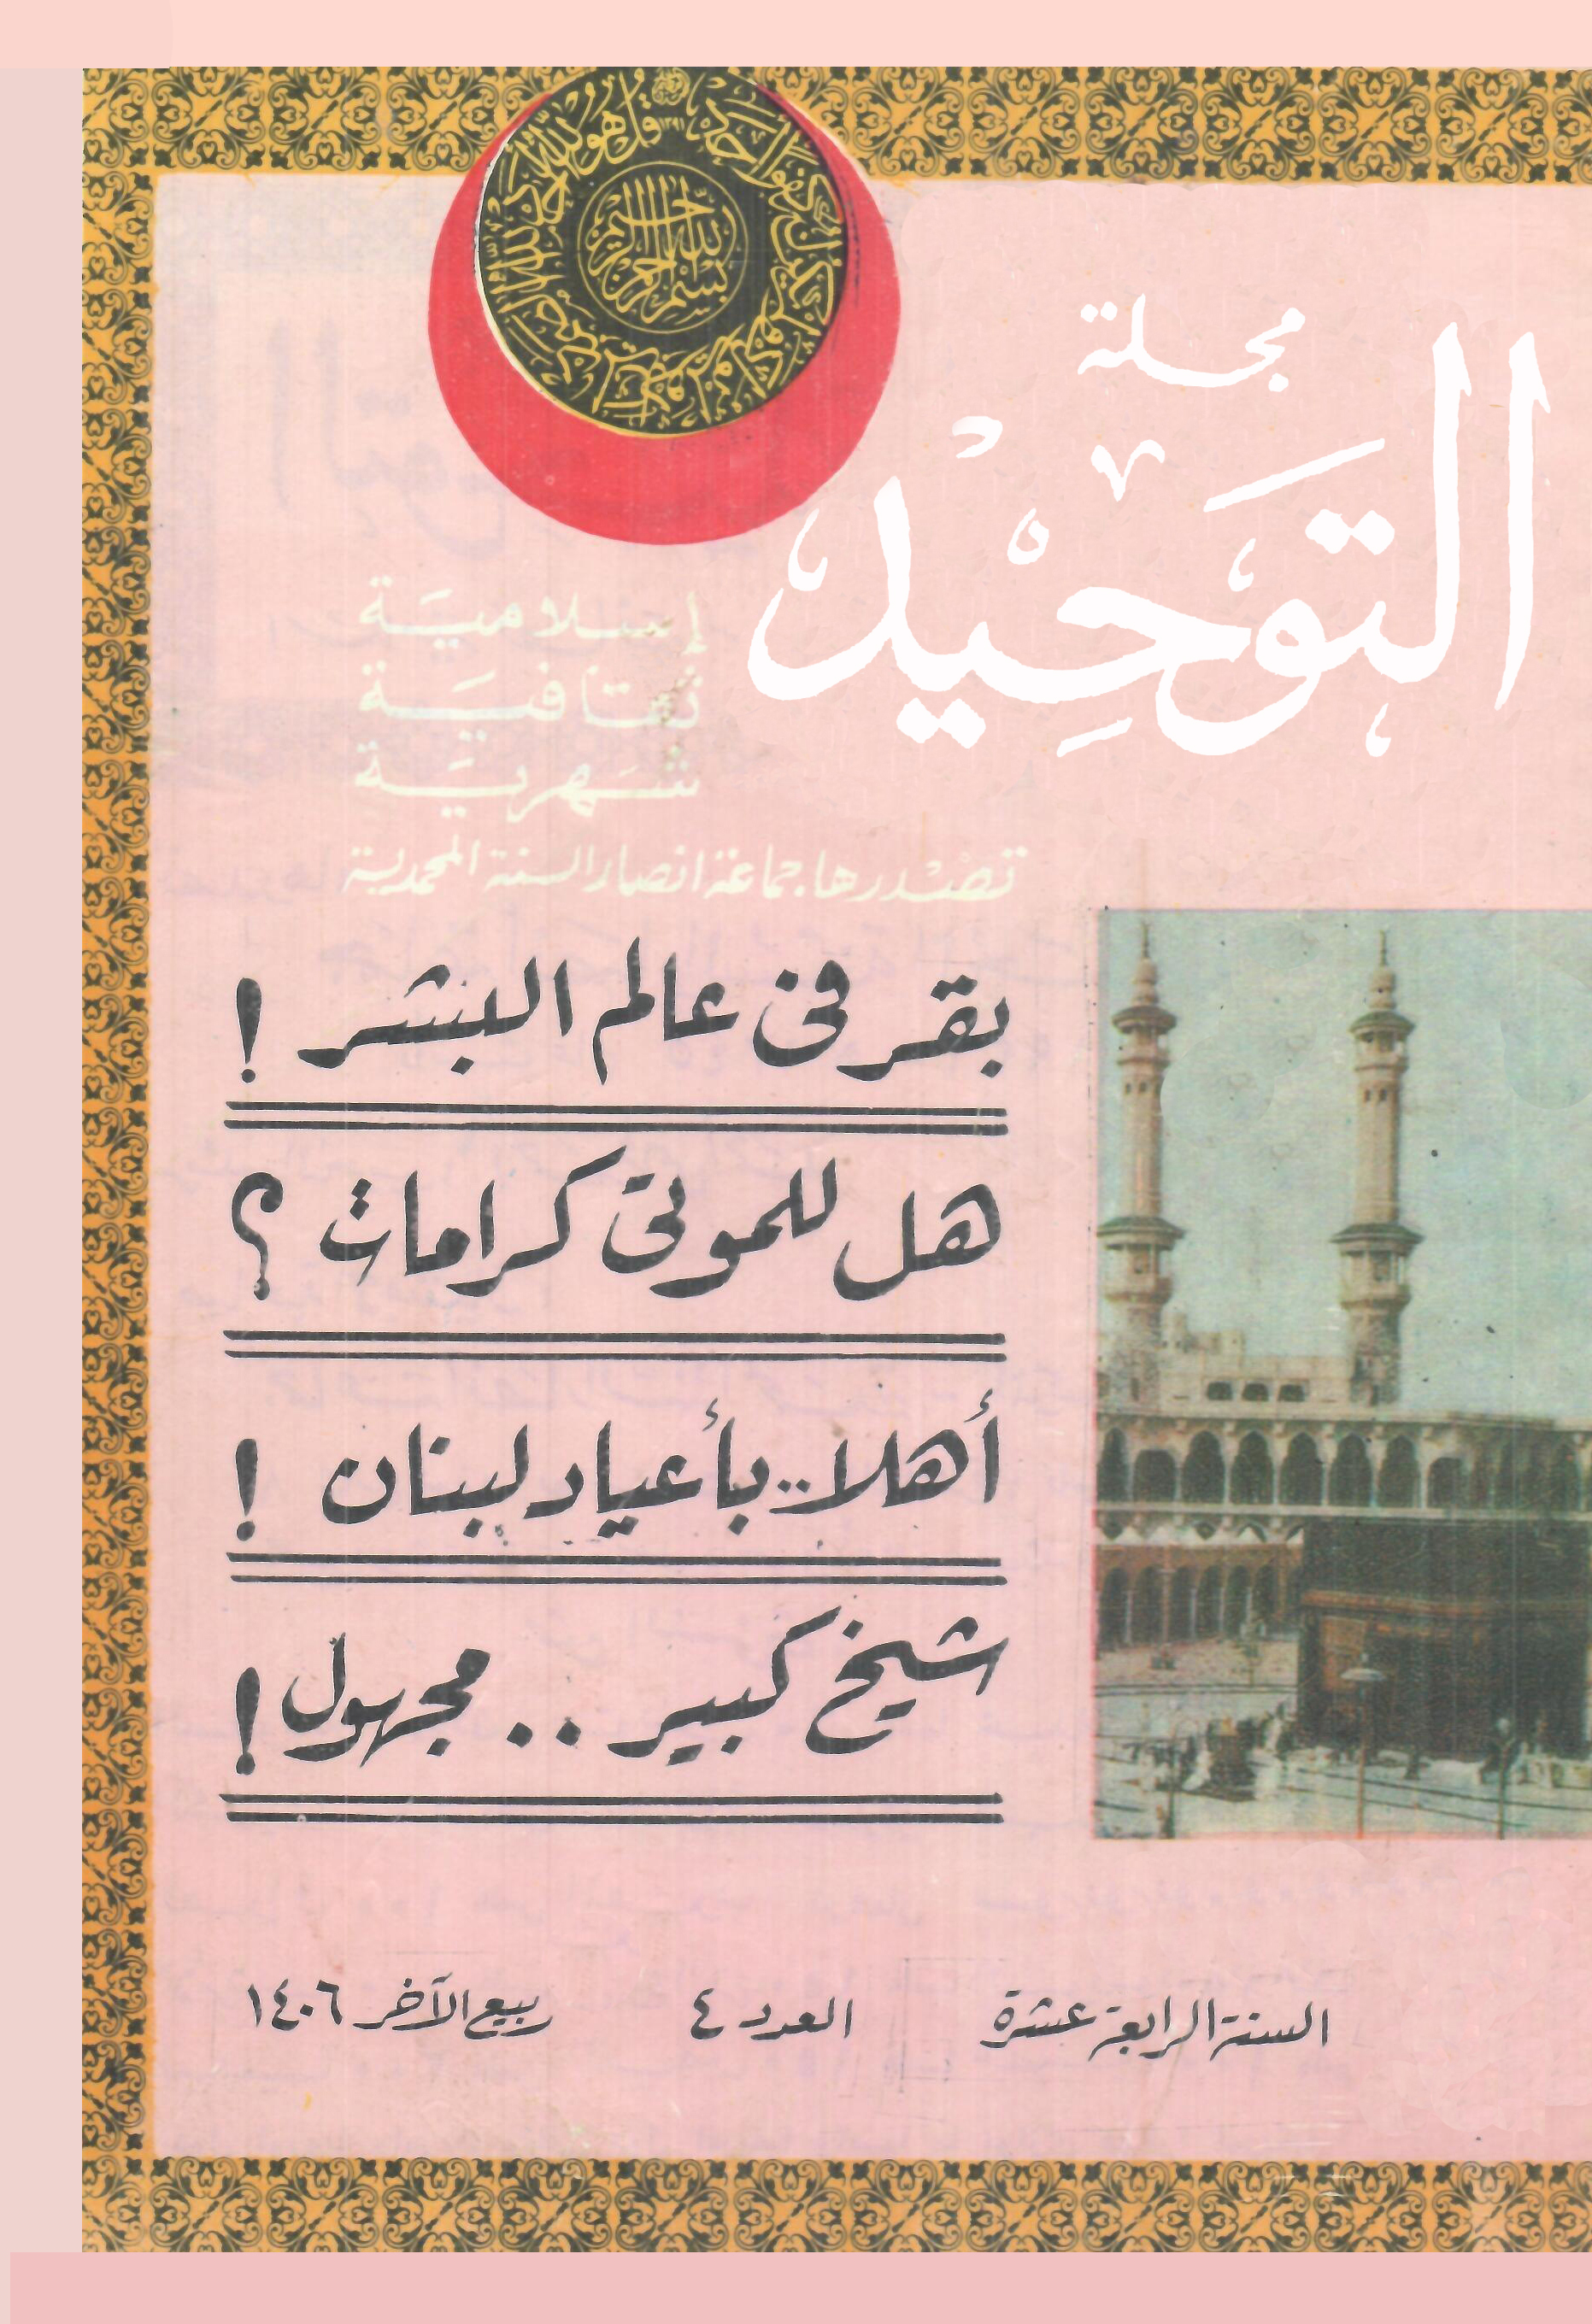 بسم الله الرحمن الرحيم
قل هو الله أحد الله الصمد
كفوا أحد
١٣٩١
مجلة
التَوحِيْد
إسلامية
ثقافية
شهرية
تصدرها جماعة انصار السنة المحمدية
بقر فى عالم البشر !
هل للموتى كرامات ؟
أهلا .. بأعياد لبنان !
شيخ كبير .. مجهول !
السنة الرابعة عشرة
العدد ٤
ربيع الآخر ١٤٠٦